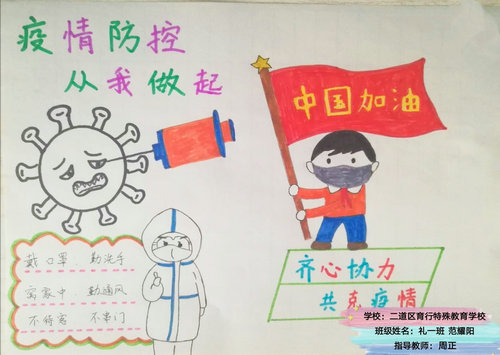 疫情防控
从我做起
中国加油
戴口罩 勤洗手
窝家中 勤通风
不待客 不串门
齐心协力
共克疫情
学校：二道区育行特殊教育学校
班级姓名：礼一班 范耀阳
指导教师：周正